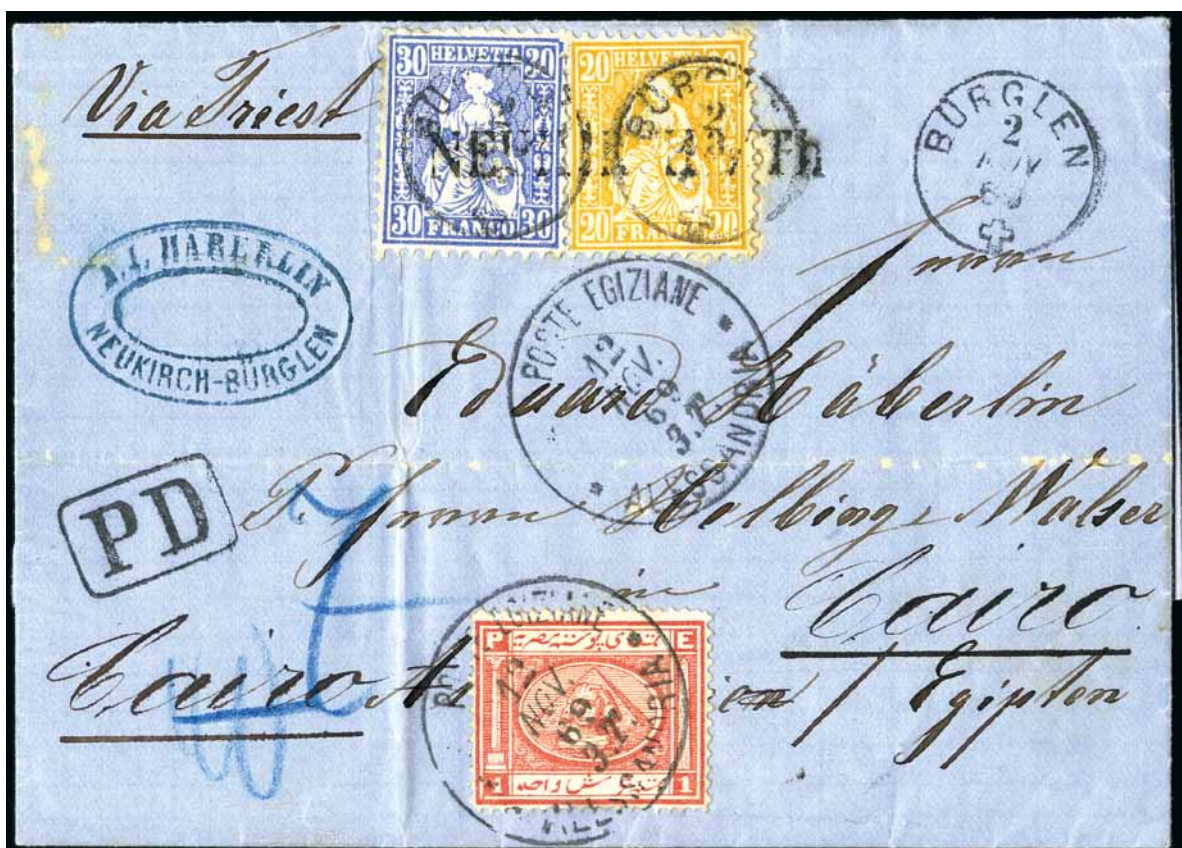 Via Triest
30 HELVETIA 30
30 FRANCO 30
20 HELVETIA 20
20 FRANCO 20
BÜRGLEN
2
NOV
69
HÄBERLIN
NEUKIRCH-BÜRGLEN
POSTE EGIZIANE
12
NOV.
69
3.T.
ALESSANDRIA
Herrn
Eduard Häberlin
P. Herrn Helbing, Walser
in
Cairo
PD
Cairo
Egipten
POSTE EGIZIANE
12
NOV.
69
3.T.
ALESSANDRIA
P E
1